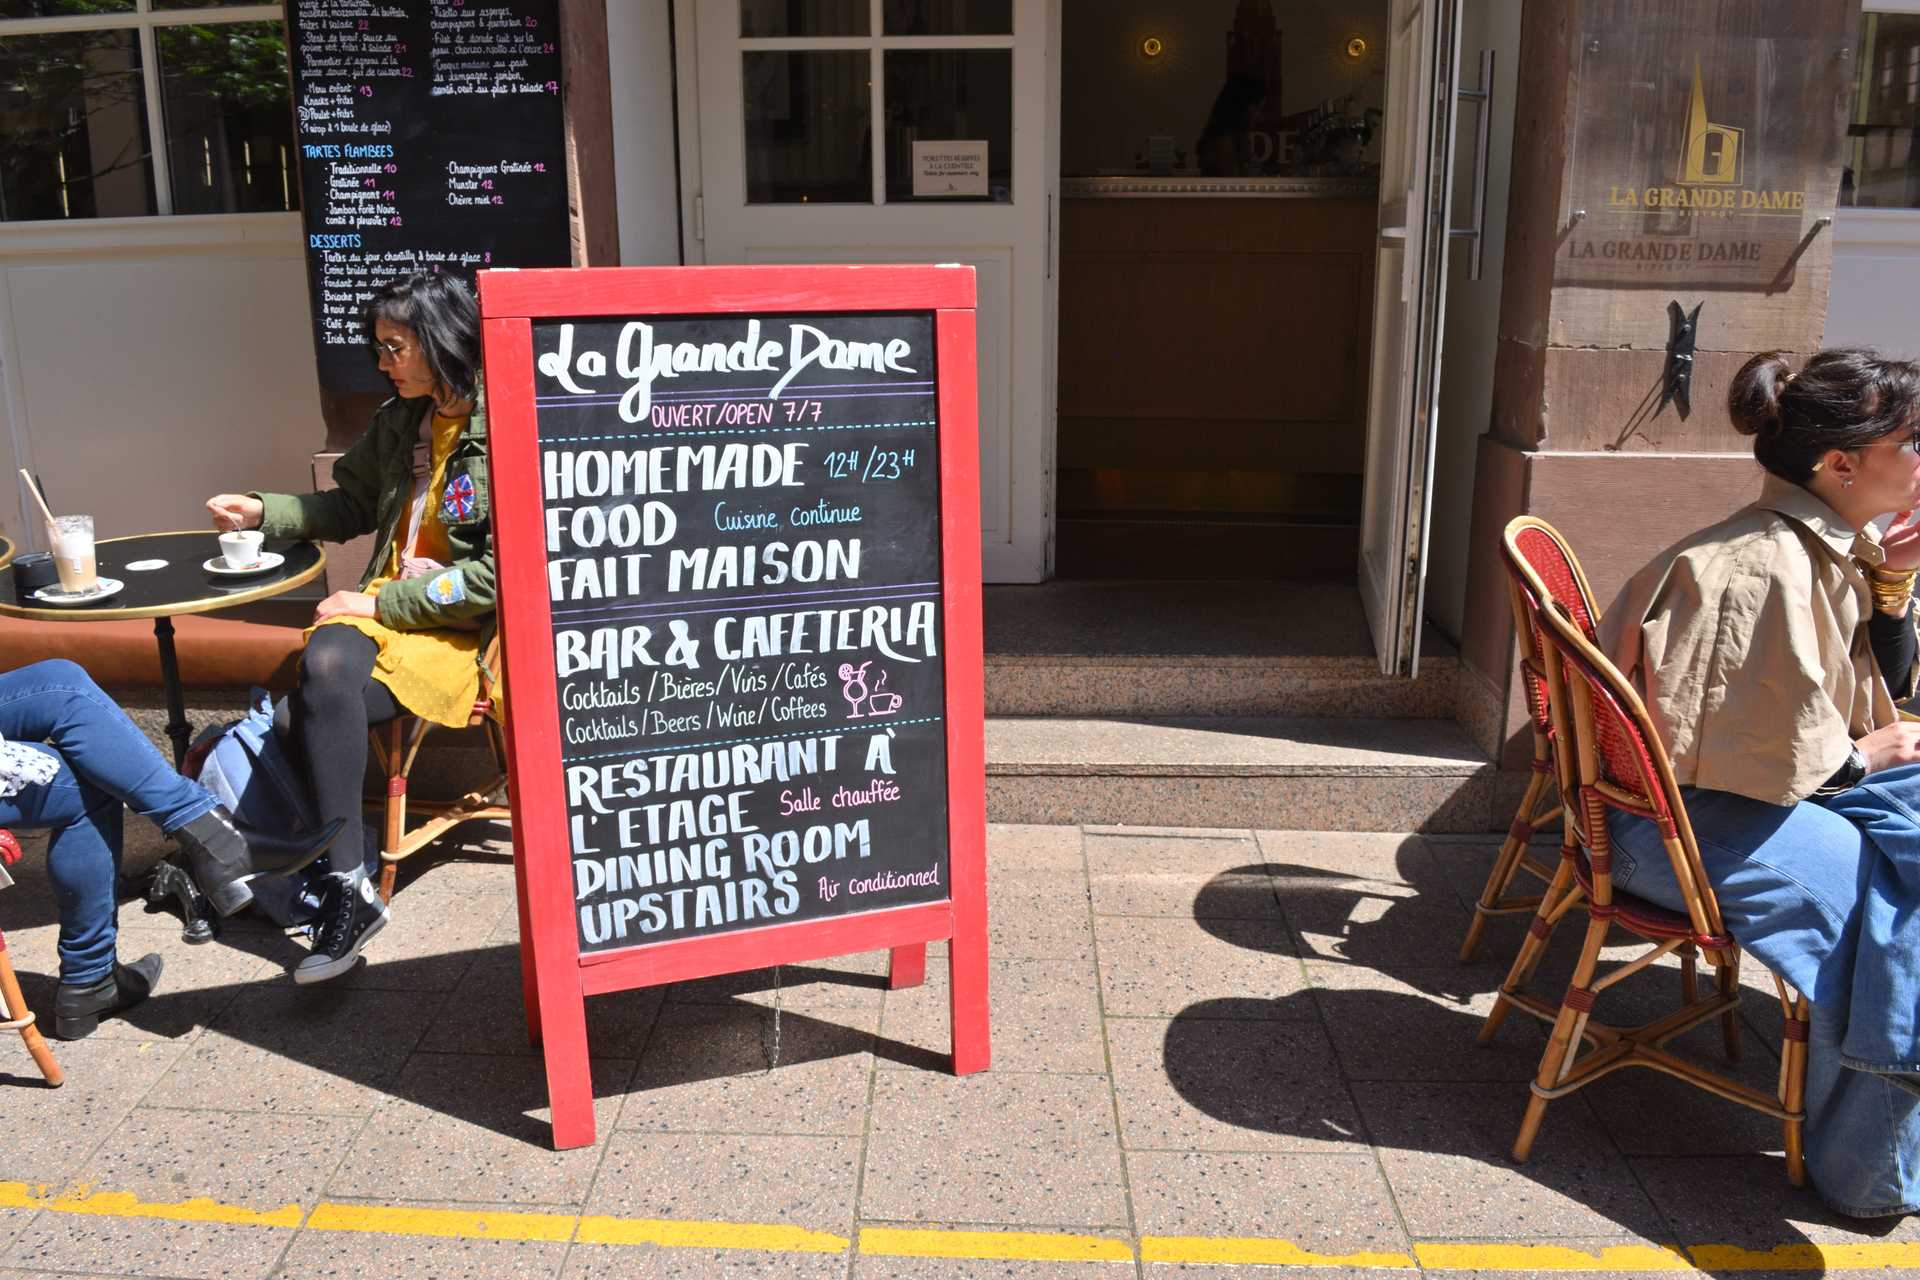 noisettes, mozzarella di buffala,
frites & salade 22
· Steak de boeuf, sauce au
poivre vert, frites & salade 21
· Parmentier d'agneau à la
patate douce, jus de cuisson 22
· Menu enfant · 13
Knacks + frites
Poulet + frites
(1 sirop & 1 boule de glace)
· Risotto aux asperges,
champignons & parmesan 20
· Filet de dorade cuit sur la
peau, chorizo, risotto à l'encre 24
· Croque madame au pain
de campagne, jambon,
comté, oeuf au plat & salade 17
TARTES FLAMBEES
· Traditionnelle 10
· Gratinée 11
· Champignons 11
· Jambon Forêt Noire,
comté & pleurotes 12
· Champignons Gratinée 12
· Munster 12
· Chèvre miel 12
DESSERTS
· Tartes du jour, chantilly & boule de glace 8
· Crème brûlée infusée au
· Fondant au
· Brioche
& noix de
· Café
· Irish
La Grande Dame
OUVERT/OPEN 7/7
HOMEMADE 12H/23H
FOOD Cuisine continue
FAIT MAISON
BAR & CAFETERIA
Cocktails/Bières/Vins/Cafés
Cocktails/Beers/Wine/Coffees
RESTAURANT À
L'ETAGE Salle chauffée
DINING ROOM
UPSTAIRS Air conditionned
TOILETTES RÉSERVÉES
À LA CLIENTÈLE
Toilets for customers only
DE
LA GRANDE DAME
BISTROT